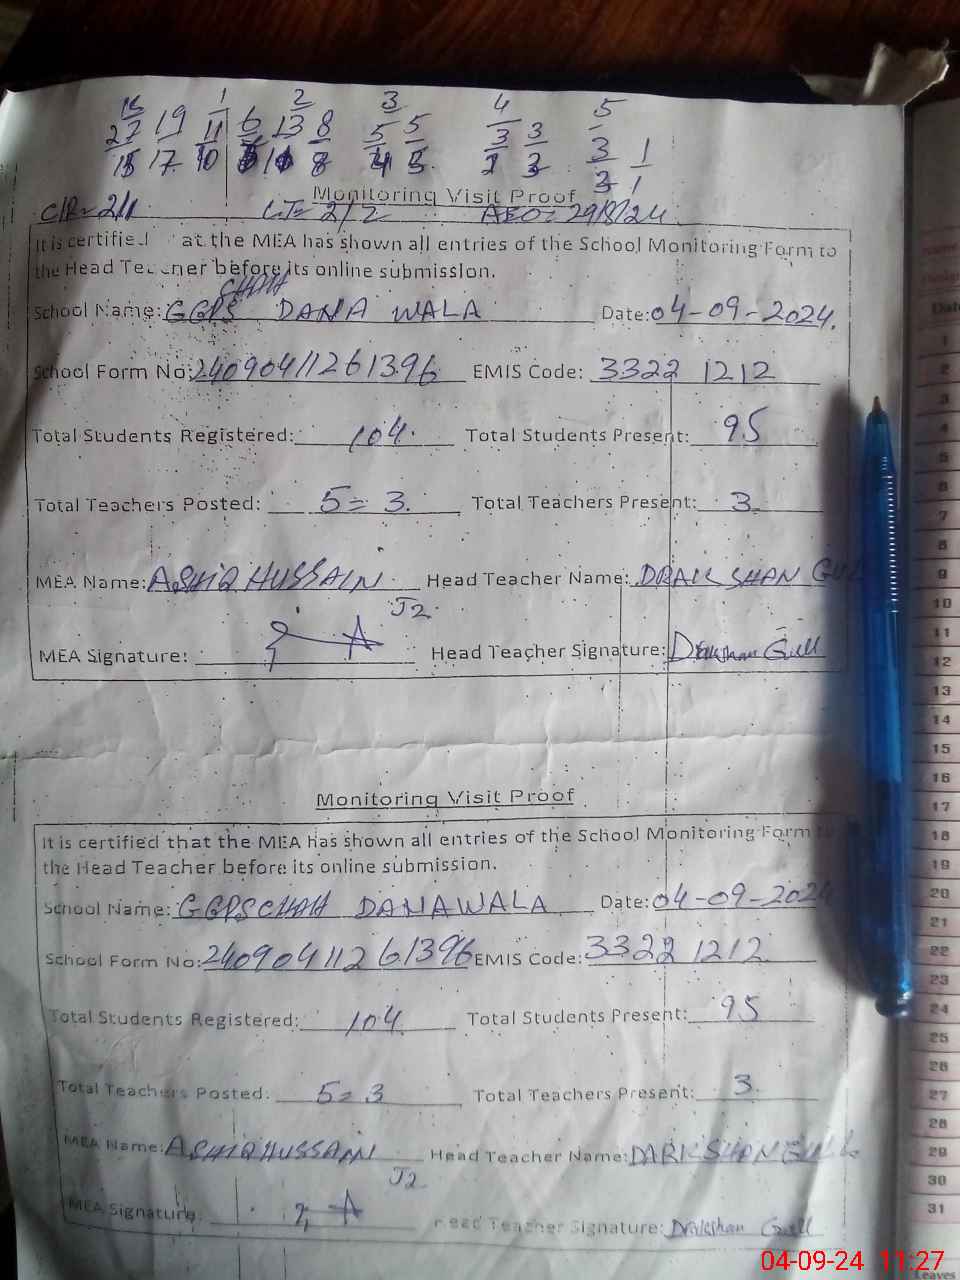 1 2 3 4 5
27 19 11 6 13 8 5 5 3 3 3 1
17 10 8 4 1
Monitoring Visit Proof
C/R= 2/1 LT= 2/2 AEO= 29/8/24
It is certified at the MEA has shown all entries of the School Monitoring Form to
the Head Teacher before its online submission.
CHAH
School Name: GGPS DANA WALA Date: 04-09-2024.
School Form No: 24090411261396 EMIS Code: 3322 1212
Total Students Registered: 104. Total Students Present: 95
Total Teachers Posted: 5= 3. Total Teachers Present: 3.
MEA Name: ASHIQ HUSSAIN Head Teacher Name: DRAKSHAN GUL
J2
MEA Signature: Head Teacher Signature: Drakshan Gull
Monitoring Visit Proof
It is certified that the MEA has shown all entries of the School Monitoring Form to
the Head Teacher before its online submission.
School Name: GGPS CHAH DANAWALA Date: 04-09-2024
School Form No: 24090411261396 EMIS Code: 3322 1212
Total Students Registered: 104 Total Students Present: 95
Total Teachers Posted: 5= 3 Total Teachers Present: 3.
MEA Name: ASHIQ HUSSAIN Head Teacher Name: DARKSHAN GULL
J2
MEA Signature: Head Teacher Signature: Drakshan Gull
Date
1
2
3
4
5
6
7
8
9
10
11
12
13
14
15
16
17
18
19
20
21
22
23
24
25
26
27
28
29
30
31
Leaves
04-09-24 11:27